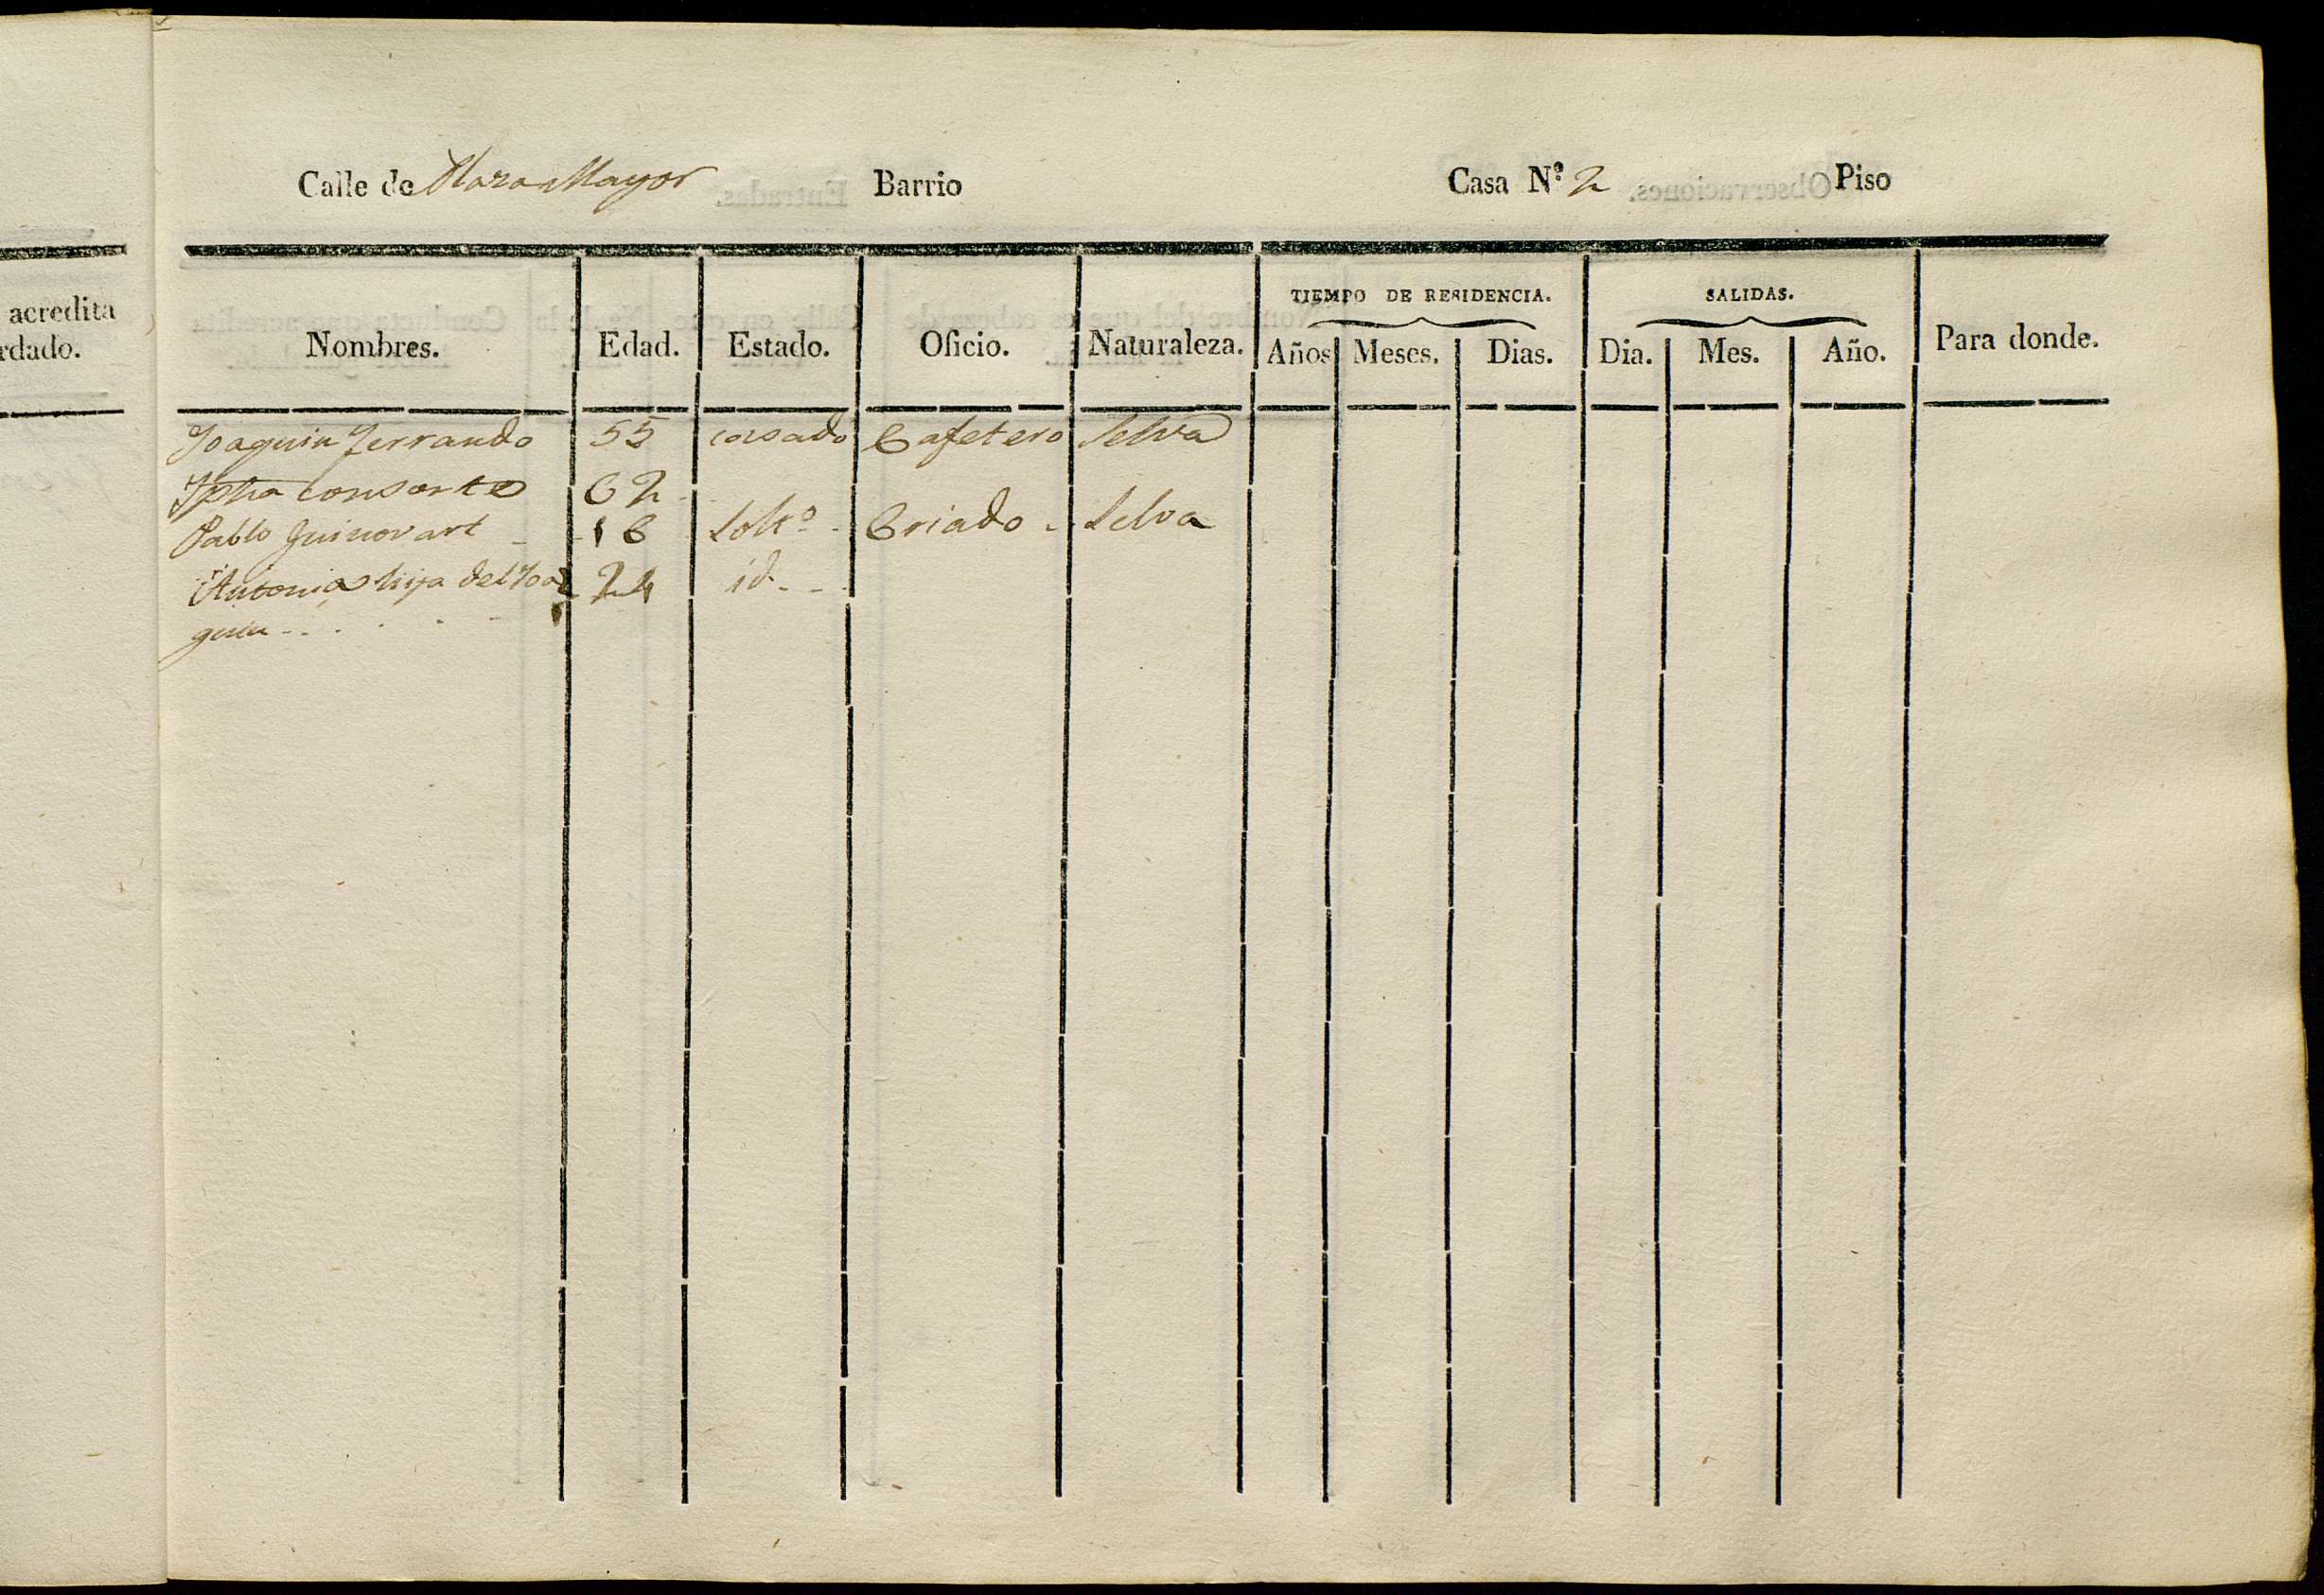 acredita
rdado.
Calle de Plaza Mayor Barrio Casa N.º 2 Piso
TIEMPO DE RESIDENCIA. SALIDAS.
Nombres. Edad. Estado. Oficio. Naturaleza. Años Meses. Dias. Dia. Mes. Año. Para donde.
Joaquin Ferrando 55 casado Cafetero Selva
consorte 62
Pablo Guinovart 16 Solt.º Criado Selva
Antonia hija del Joa 24 id.
quin